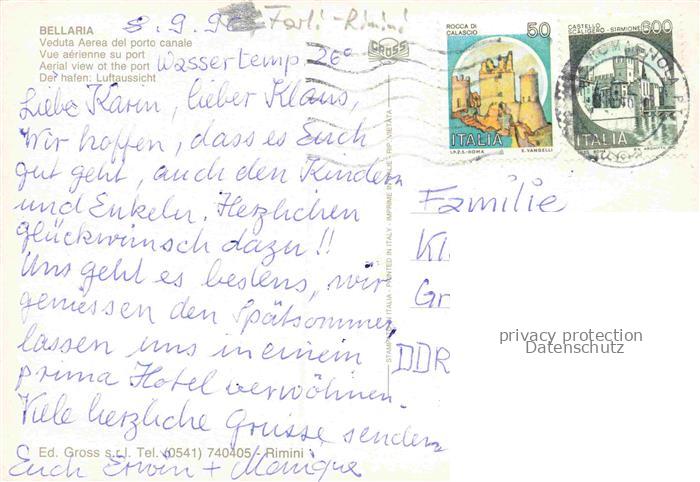 BELLARIA
Veduta Aerea del porto canale
Vue aérienne su port
Aerial view ot the port
Der hafen: Luftaussicht
8.9.90
Forlì-Rimini
Wassertemp. 26°
GROSS
ROCCA DI CALASCIO
50
ITALIA
I.P.Z.S.-ROMA E. VANGELLI
CASTELLO SCALIGERO-SIRMIONE
600
ITALIA
Liebe Karin, lieber Klaus,
Wir hoffen, dass es Euch
gut geht, auch den Kindern
und Enkeln. Herzlichen
glückwunsch dazu!!
Uns geht es bestens, wir
geniessen den Spätsommer,
lassen uns in einem
prima Hotel verwöhnen.
Viele herzliche Grüsse senden
Euch Erwin + Monique
Ed. Gross s.r.l. Tel. (0541) 740405 - Rimini
STAMPATO IN ITALIA - PRINTED IN ITALY - IMPRIME IN ITALIE - RIP. VIETATA
Familie
Kl
Gr
DDR
privacy protection
Datenschutz